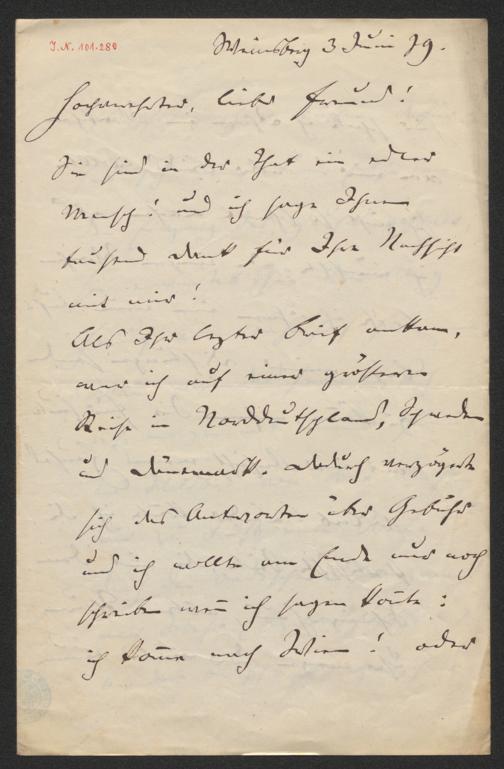 J.N. 101.280
Weinsberg 3 Juni 79.
Hochverehrter, lieber Freund!
Sie sind in der That ein edler
Mensch! und ich sage Ihnen
tausend Dank für Ihre Nachsicht
mit mir!
Als Ihr lezter Brief ankam,
war ich auf einer größeren
Reise in Norddeutschland, Schweden
und Dänemark. Dadurch verzögerte
sich das Antworten über Gebühr
und ich wollte am Ende nur noch
schreiben wen̄ ich sagen kon̄te:
ich kom̄e nach Wien! oder